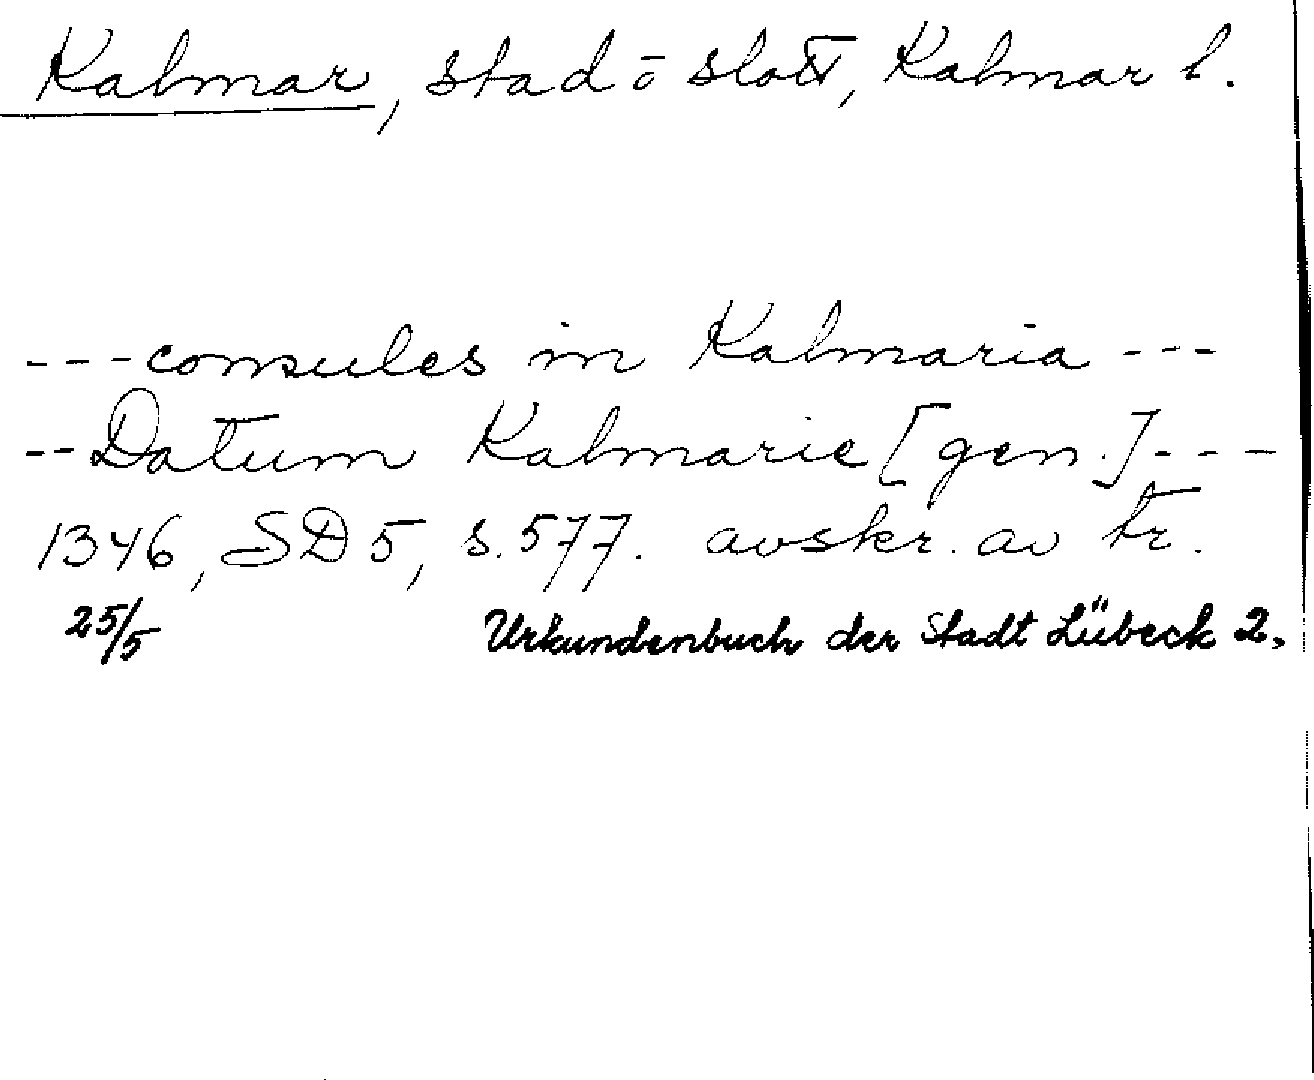 Kalmar, stad o slott, Kalmar l.
---consules in Kalmaria---
--Datum Kalmarie [gen.]---
1346, SD 5, s. 577. avskr. av tr.
25/5 Urkundenbuch der Stadt Lübeck 2,